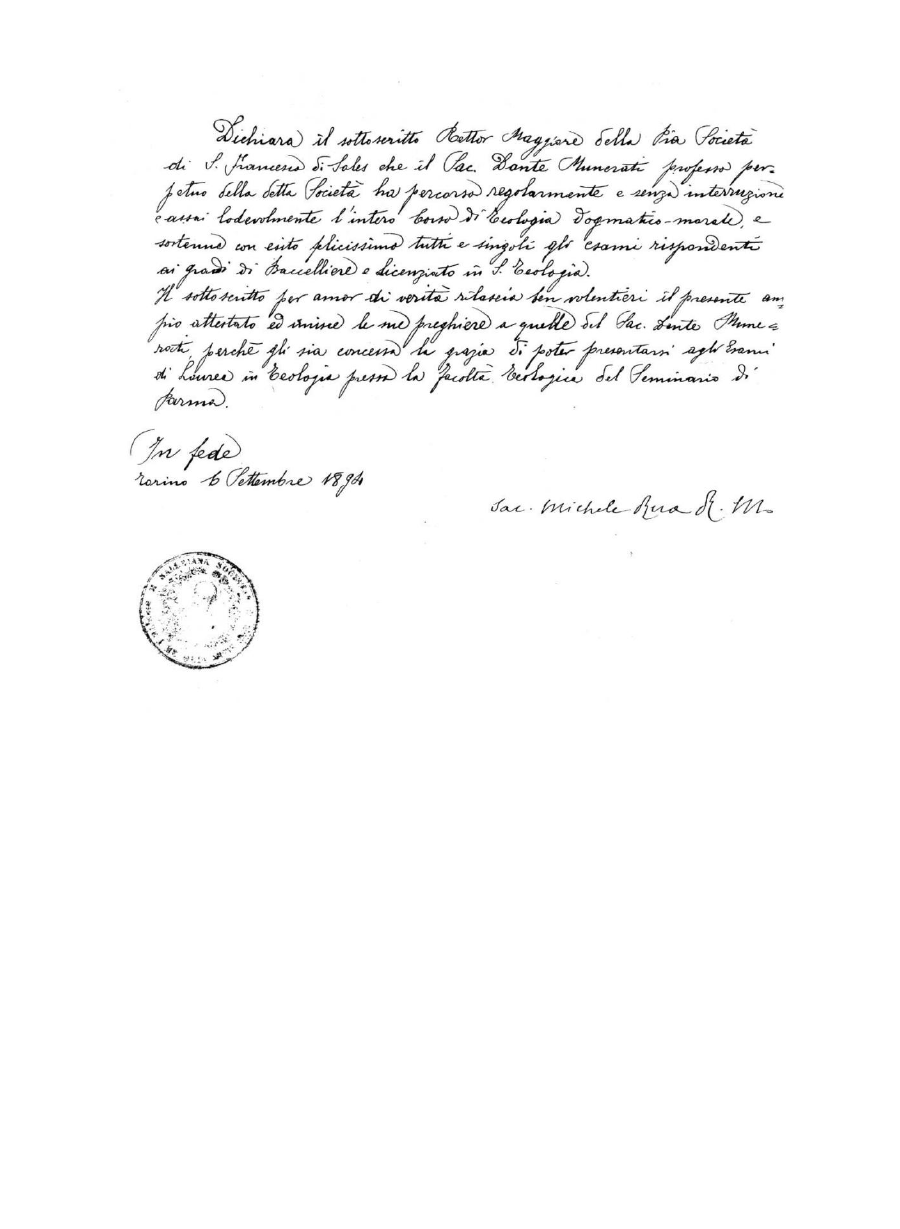 Dichiara il sottoscritto Rettor Maggiore della Pia Società
di S. Francesco di Sales che il Sac. Dante Munerati professo per-
petuo della detta Società ha percorso regolarmente e senza interruzione
e assai lodevolmente l'intero Corso di Teologia Dogmatico-morale, e
sostenne con esito plicissimo tutti e singoli gli esami rispondenti
ai gradi di Baccelliere e Licenziato in S. Teologia.
Il sottoscritto per amor di verità rilascia ben volentieri il presente am=
pio attestato ed unisce le sue preghiere a quelle del Sac. Dante Mune=
rati, perchè gli sia concessa la grazia di poter presentarsi agli Esami
di Laurea in Teologia presso la Facoltà Teologica del Seminario di
Parma.
In fede
Torino 6 Settembre 1894
Sac. Michele Rua R. M.